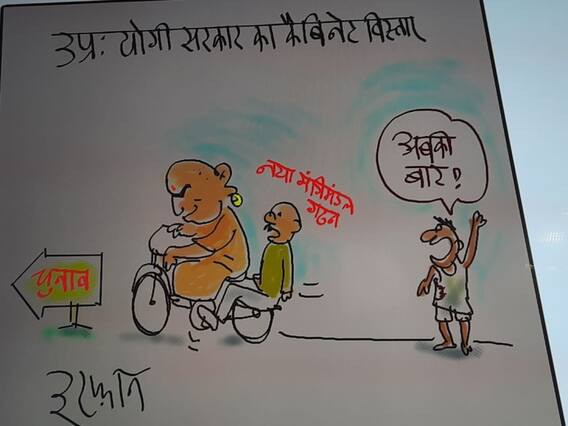 उप्र: योगी सरकार का कैबिनेट विस्तार
अबकी
बार?
नया मंत्रिमंडल
गठन
चुनाव
इरफ़ान